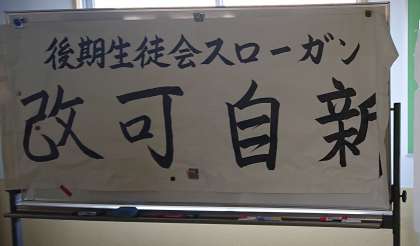 後期生徒会スローガン
改可自新